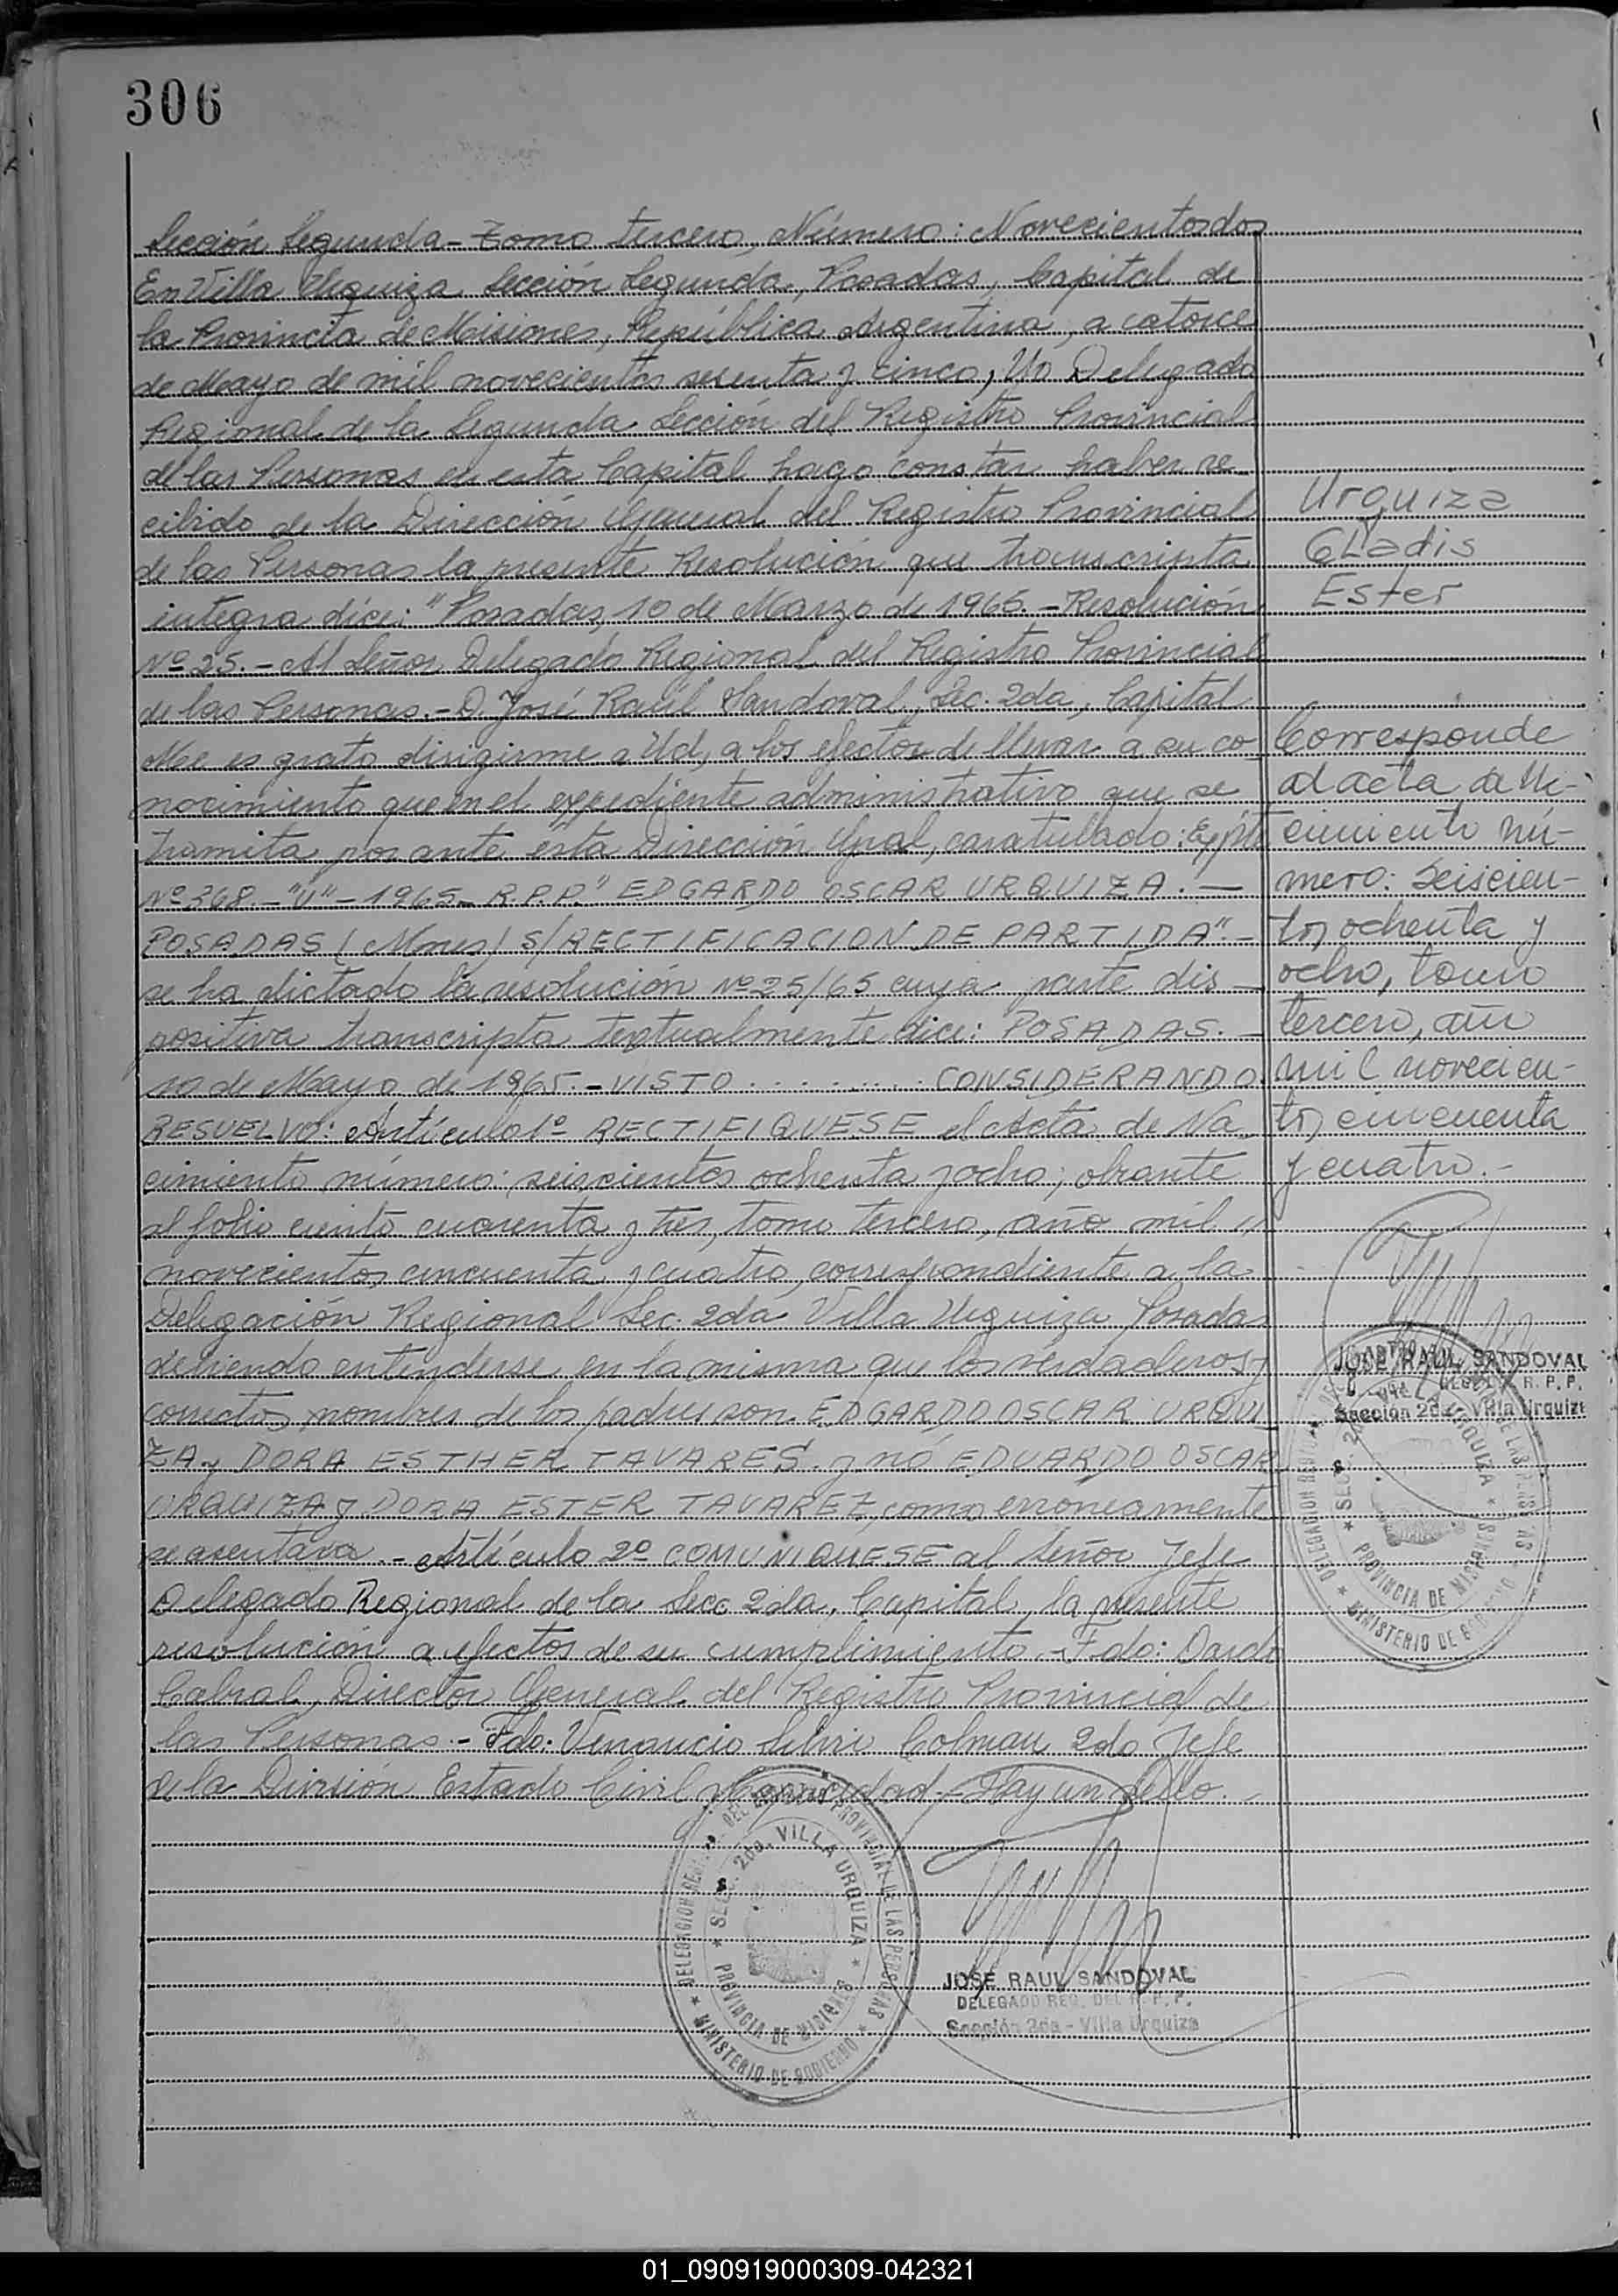 306
Sección Segunda - Tomo tercero, Número: Novecientos dos
En Villa Urquiza Sección Segunda, Posadas, Capital de
la Provincia de Misiones, República Argentina, a catorce
de Mayo de mil novecientos sesenta y cinco, Yo Delegado
Regional de la Segunda Sección del Registro Provincial
de las Personas en esta Capital hago constar haber re
cibido de la Dirección General del Registro Provincial
de las Personas la presente Resolución que transcripta
integra dice: "Posadas, 10 de Marzo de 1965. - Resolución
Nº 25. - Al Señor Delegado Regional del Registro Provincial
de las Personas. - D. José Raúl Sandoval, Sec. 2da, Capital
Me es grato dirigirme a Ud, a los efectos de llevar a su co
nocimiento que en el expediente administrativo que se
tramita por ante ésta Dirección Gral, caratullado: Expte
Nº 368. - "U" - 1965 - R.P.P." EDGARDO OSCAR URQUIZA. —
POSADAS (Mnes) S/RECTIFICACION DE PARTIDA". -
se ha dictado la resolución Nº 25/65 cuya parte dis -
positiva transcripta textualmente dice: POSADAS. -
10 de Mayo de 1965. - VISTO . . . . . . . . . CONSIDERANDO
RESUELVO: Artículo 1º RECTIFIQUESE el Acta de Na
cimiento número: seiscientos ochenta y ocho; obrante
al folio ciento cuarenta y tres, tomo tercero, año mil
novecientos cincuenta y cuatro, correspondiente a la
Delegación Regional Sec. 2da Villa Urquiza Posadas
debiendo entenderse en la misma que los verdaderos y
correctos nombres de los padres son EDGARDO OSCAR URQUI
ZA y DORA ESTHER TAVARES y nó EDUARDO OSCAR
URQUIZA y DORA ESTER TAVAREZ, como erróneamente
se asentara. - Artículo 2º COMUNIQUESE al Señor Jefe
Delegado Regional de la Secc 2da, Capital, la presente
resolución a efectos de su cumplimiento. - Fdo: Dardo
Cabral, Director General del Registro Provincial de
las Personas. - Fdo: Venancio Colman 2do Jefe
de la División Estado Civil y Capacidad. - Hay un sello. -
Urquiza
Gladis
Ester
Corresponde
al acta de Na-
cimiento nú-
mero: seiscien-
tos ochenta y
ocho, tomo
tercero, año
mil novecien-
tos cincuenta
y cuatro. -
JOSE RAUL SANDOVAL
R. P. P.
Sección 2da - Villa Urquiza
DELEGACION REGIONAL DEL REGISTRO PROVINCIAL DE LAS PERSONAS
SECC. 2da. VILLA URQUIZA
PROVINCIA DE MISIONES
MINISTERIO DE GOBIERNO
DELEGACION REGIONAL DEL REGISTRO PROVINCIAL DE LAS PERSONAS
SECC. 2da. VILLA URQUIZA
PROVINCIA DE MISIONES
MINISTERIO DE GOBIERNO
JOSE RAUL SANDOVAL
DELEGADO REG. DEL R. P. P.
Sección 2da - Villa Urquiza
01_090919000309-042321